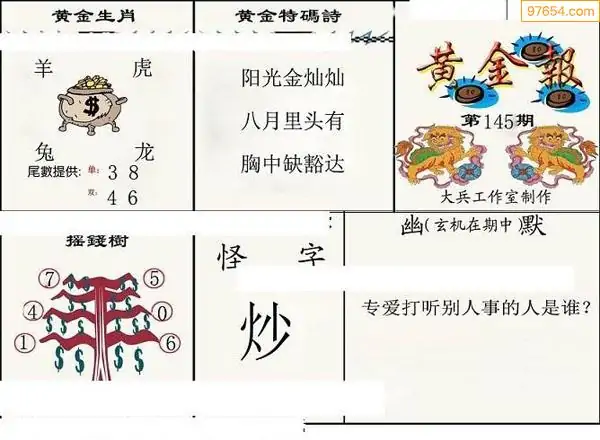 黄金生肖
羊 虎
兔 龙
尾數提供: 单: 3 8
双: 4 6
黄金特碼詩
阳光金灿灿
八月里头有
胸中缺豁达
97654.com
黄金報
第145期
大兵工作室制作
摇錢樹
⑦ ⑤
④ ⓪
① ⑥
怪 字
炒
幽(玄机在期中)默
专爱打听别人事的人是谁?